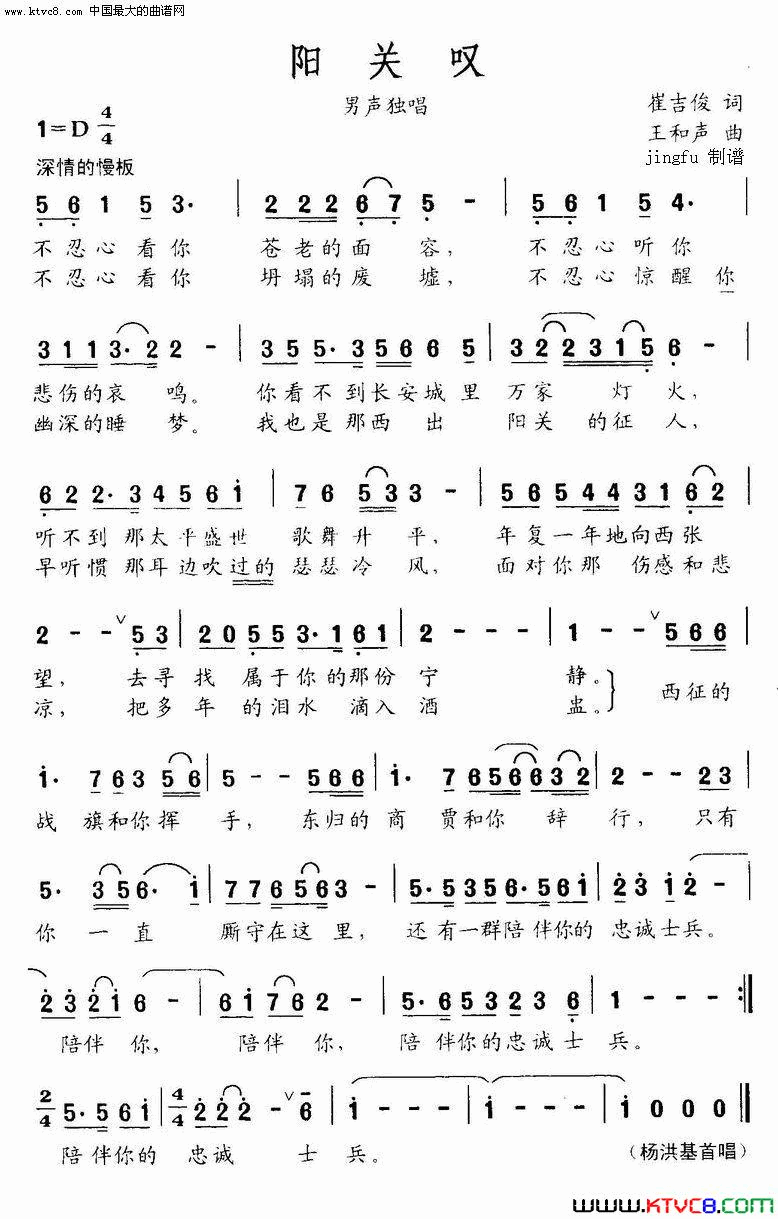 www.ktvc8.com 中国最大的曲谱网
阳关叹
男声独唱
崔吉俊 词
1=D 4/4
王和声 曲
jingfu 制谱
深情的慢板
5 6 1 5 3· | 2 2 2 2 6 7 5 - | 5 6 1 5 4·
不忍心看你 苍老的面 容， 不忍心听你
不忍心看你 坍塌的废 墟， 不忍心惊醒 你
3 1 1 3· 2 2 - | 3 5 5· 3 5 6 6 5 | 3 2 2 3 1 5 6 -
悲伤的哀 鸣。 你看不到长安城里 万家 灯火，
幽深的睡 梦。 我也是那西出 阳关 的征人，
6 2 2· 3 4 5 6 i | 7 6 5 3 3 - | 5 6 5 4 4 3 1 6 2
听不到 那太平盛世 歌舞升 平， 年复一年地向西张
早听惯 那耳边吹过的 瑟瑟冷 风， 面对你那 伤感和悲
2 - - ∨ 5 3 | 2 0 5 5 3· 1 6 1 | 2 - - - | 1 - ∨ 5 6 6
望， 去寻找 属于你的那份宁 静。 西征的
凉， 把多年 的泪水 滴入酒 盅。
i· 7 6 3 5 6 | 5 - - 5 6 6 | i· 7 6 5 6 6 3 2 | 2 - - 2 3
战 旗和你挥 手， 东归的商 贾和你 辞 行， 只有
5· 3 5 6· i | 7 7 6 5 6 3 - | 5· 5 3 5 6· 5 6 i | 2 3 i 2 -
你 一直 厮守在这里， 还有一群陪伴你的 忠诚士兵。
2 3 2 i 6 - | 6 i 7 6 2 - | 5· 6 5 3 2 3 6 | 1 - - - :‖
陪伴你， 陪伴 你， 陪 伴你的忠诚士 兵。
2/4 5· 5 6 i | 4/4 2 2 2 - ∨ 6 | i - - - | i - i - | i 0 0 0 ‖
陪伴你的 忠诚 士 兵。
（杨洪基首唱）
www.KTVC8.com